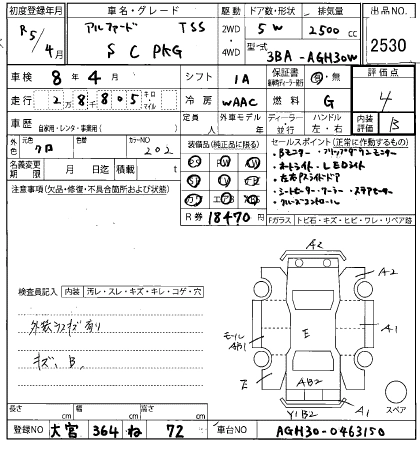 初度登録年月 車名・グレード 駆動 ドア数・形状 排気量 出品NO.
R5/4月 アルファード TSS 2WD・4WD 5W 2500cc 2530
S C PKG 型式 3BA-AGH30W
車検 8年4月 シフト IA 保証書 有・無 評価点
走行 2万8805 キロ マイル 冷房 WAAC 燃料 G 4
車歴 自家用・レンタ・事業用( ) 定員 人 外車モデル 年 ディーラー・並行 ハンドル 左・右 内装評価 B
外色 元色 クロ 色替 カラーNO 202 装備品(純正品に限る) セールスポイント(正常に作動するもの)
名義変更期限 月 日迄 積載 t PS PW
・オートライト ・LEDライト
注意事項(欠品・修復・不具合箇所および状態) ・左右Pスライドドア
・シートヒーター・クーラー
・クルーズコントロール
R券 18470円 Fガラス トビ石・キズ・ヒビ・ワレ・リペア跡
検査員記入 内装 汚レ・スレ・キズ・キレ・コゲ・穴
A2
A2
外装ウスキズ有り
モール AB1 E A1
キズ、B
E AB2 スペア
長さ cm 幅 cm 高さ cm Y1B2 A1
登録NO 大宮 364 ね 72 車台NO AGH30-0463150